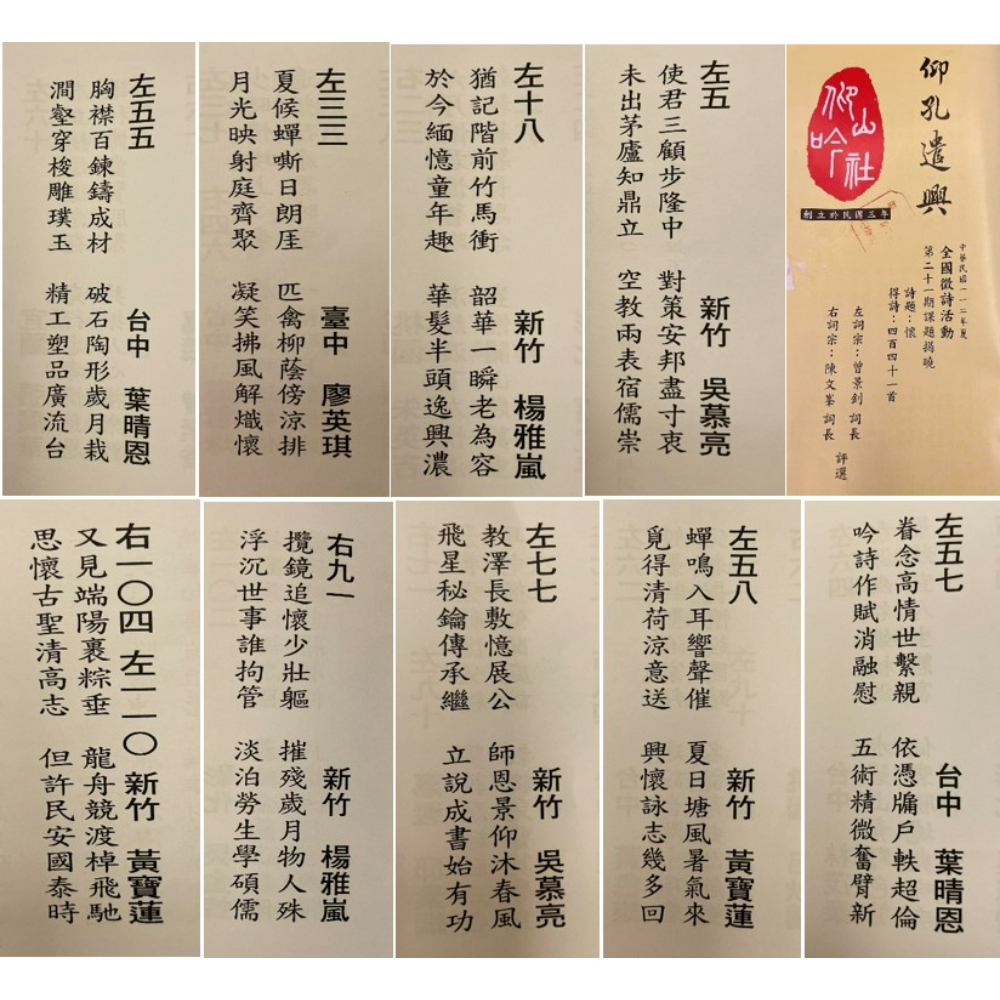 仰孔遣興
仰山吟社
創立於民國三年
中華民國一一二年夏
全國徵詩活動
第二十一期課題揭曉
詩題：懷
得詩：四百四十一首
左詞宗：曾景釗 詞長
右詞宗：陳文峯 詞長 評選
左五 新竹 吳慕亮
使君三顧步隆中 對策安邦盡寸衷
未出茅廬知鼎立 空教兩表宿儒崇
左十八 新竹 楊雅嵐
猶記階前竹馬衝 韶華一瞬老為容
於今緬憶童年趣 華髮半頭逸興濃
左三三 臺中 廖英琪
夏候蟬嘶日朗厓 匹禽柳蔭傍涼排
月光映射庭齊聚 凝笑拂風解熾懷
左五五 台中 葉晴恩
胸襟百鍊鑄成材 破石陶形歲月栽
澗壑穿梭雕璞玉 精工塑品廣流台
左五七 台中 葉晴恩
眷念高情世繫親 依憑牖戶軼超倫
吟詩作賦消融慰 五術精微奮臂新
左五八 新竹 黃寶蓮
蟬鳴入耳響聲催 夏日塘風暑氣來
覓得清荷涼意送 興懷詠志幾多回
左七七 新竹 吳慕亮
教澤長敷憶展公 師恩景仰沐春風
飛星秘鑰傳承繼 立說成書始有功
右九一 新竹 楊雅嵐
攬鏡追懷少壯軀 摧殘歲月物人殊
浮沉世事誰拘管 淡泊勞生學碩儒
右一〇四 左一一〇 新竹 黃寶蓮
又見端陽裹粽垂 龍舟競渡棹飛馳
思懷古聖清高志 但許民安國泰時